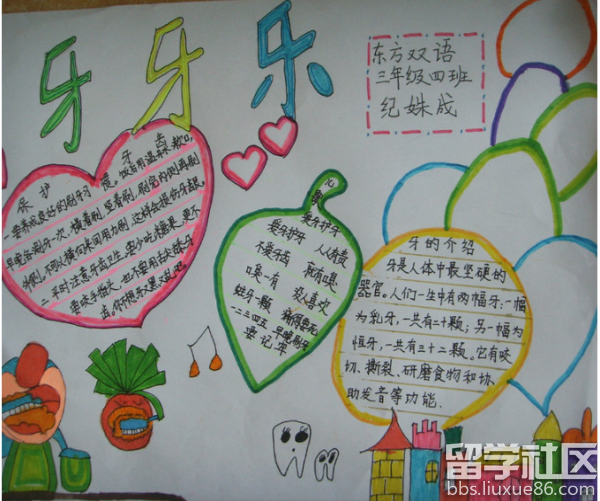 牙牙乐
东方双语
三年级四班
纪姝成
保护牙齿
一要养成良好的刷牙习惯。饭后用温茶漱口,
早晚各刷牙一次,横着刷,竖着刷,刷完内侧再刷
外侧,不可以横向来回用力刷,这样会损伤牙龈。
二平时注意牙齿卫生,要少吃糖果,更不
要咬手指头,也不要用舌头舔牙
齿。你不想牙又黑又乱吧。
爱牙护牙
爱牙护牙 人人有责
不爱牙齿 就有嗅
嗅一有 没人喜欢
蛀牙一颗 痛得要死
一二三四五 早晚刷牙
要记牢
牙的介绍
牙是人体中最坚硬的
器官。人们一生中有两幅牙:一幅
为乳牙,一共有二十颗;另一幅为
恒牙,一共有三十二颗。它有咬
切、撕裂、研磨食物和协
助发音等功能.
留学社区
bbs.liuxue86.com